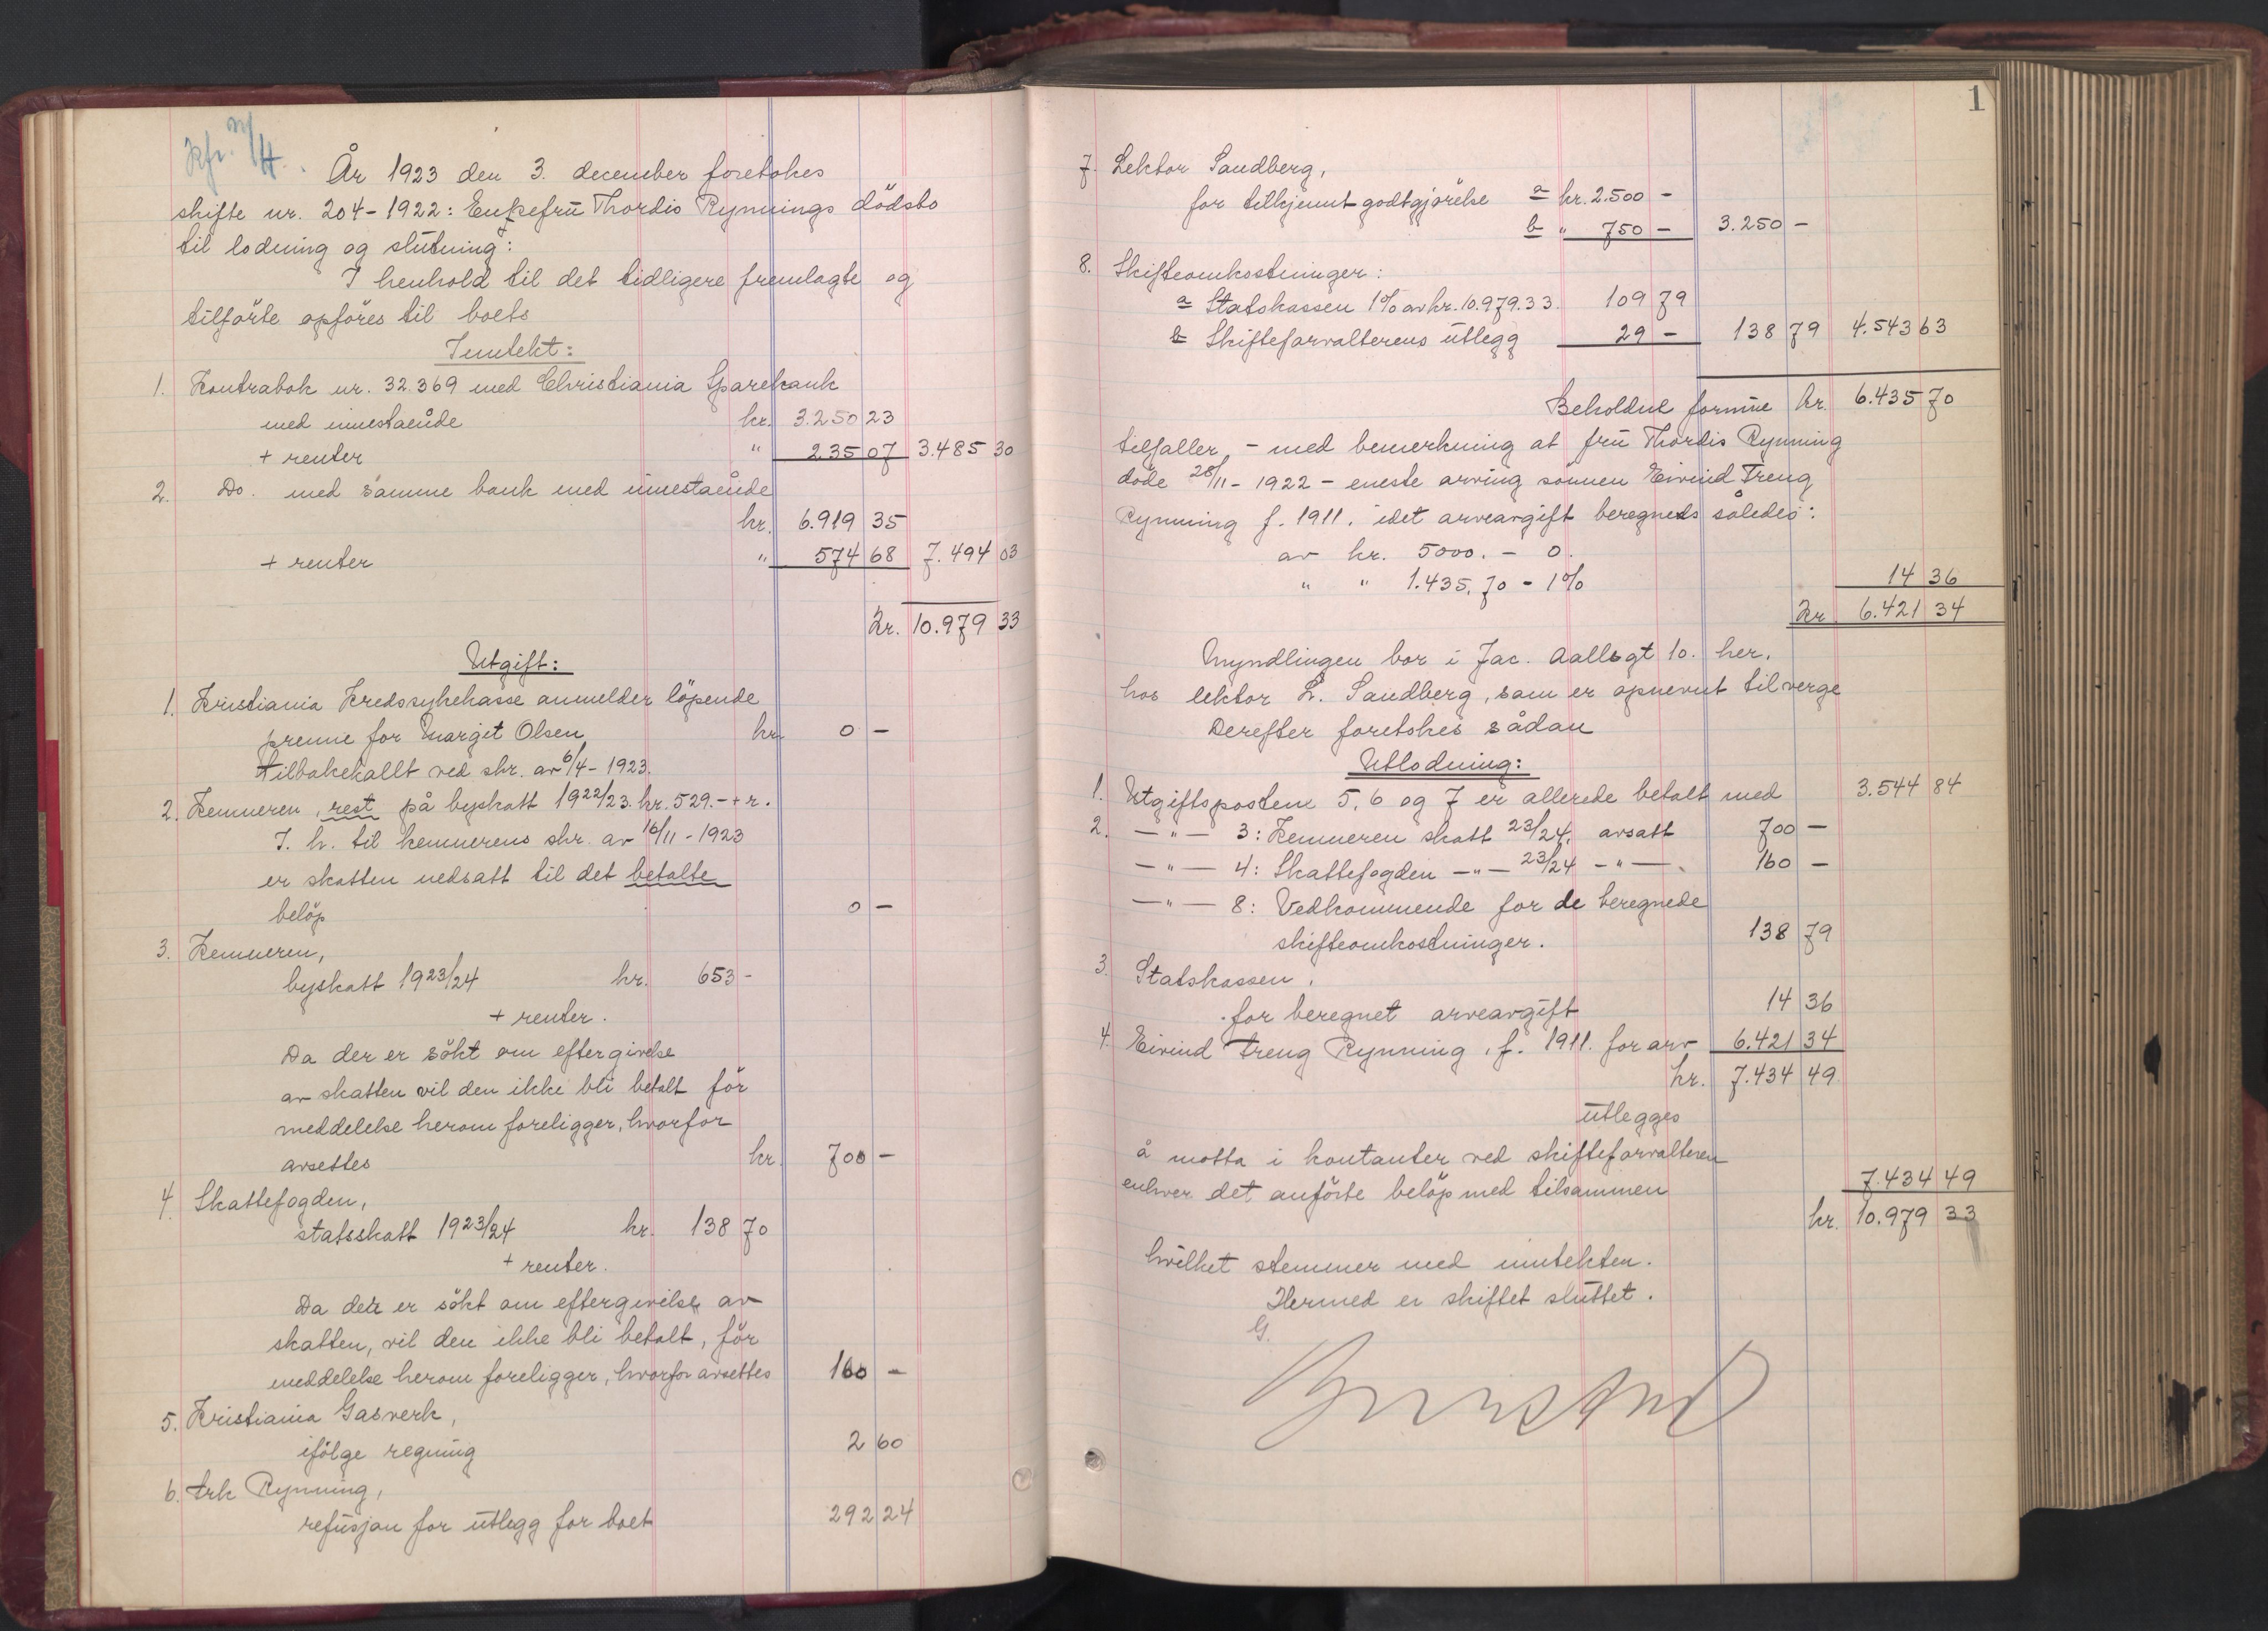 Kfr.
År 1923 den 3. december foretokes
skifte nr. 204-1922: Enkefrü Thordis Rynnings dödsbo
til lodning og slutning:
I henhold til det tidligere fremlagte og
tilförte opföres til boets
Inntekt:
1. Kontrabok nr. 32.369 med Christiania Sparebank
med innestående kr. 3.250 23
+ renter " 235 07 3.485 30
2. Do. med samme bank med innestående
kr. 6.919 35
+ renter " 574 68 7.494 03
Kr. 10.979 33
Utgift:
1. Kristiania Kredssykekasse anmelder löpende
premie for Margit Olsen kr. 0 -
tilbakekallt ved skr. av 6/4-1923.
2. Kemneren, rest på byskatt 1922/23. kr. 529.- + r.
I. h. til kemnerens skr. av 16/11-1923
er skatten nedsatt til det betalte
belöp 0 -
3. Kemneren,
byskatt 1923/24 kr. 653 -
+ renter.
Da der er sökt om eftergivelse
av skatten vil den ikke bli betalt för
meddelelse herom foreligger, hvorfor
avsettes kr. 700 -
4. Skattefogden,
statsskatt 1923/24 kr. 138 70
+ renter.
Da der er sökt om eftergivelse av
skatten, vil den ikke bli betalt, för
meddelelse herom foreligger, hvorfor avsettes 160 -
5. Kristiania Gasverk,
ifölge regning 2 60
6. Ark Rynning,
refusjon for utlegg for boet 292 24
1
7. Lektor Sandberg,
for tilkjennt godtgjörelse a kr. 2.500 -
b " 750 - 3.250 -
8. Skifteomkostninger:
a Statskassen 1% av kr. 10.979.33. 109 79
b Skifteforvalterens utlegg 29 - 138 79 4.543 63
Beholdne formue kr. 6.435 70
tilfaller, - med bemerkning at frü Thordis Rynning
döde 28/11-1922 - eneste arving sönnen Eivind Treng
Rynning f. 1911. idet arveavgift beregnes således:
av kr. 5000. - 0.
" " 1.435.70 - 1% 14 36
Kr 6.421 34
Myndlingen bor i Jac. Aallsgt 10. her.
hos lektor L. Sandberg, som er opnevnt til verge
Derefter foretokes sådan
Utlodning:
1. Utgiftspostene 5, 6 og 7 er allerede betalt med 3.544 84
2. - " - 3: Kemneren skatt 23/24, avsatt 700 -
- " - 4: Skattefogden - " - 23/24 - " - 160 -
- " - 8: Vedkommende for de beregnede
skifteomkostninger. 138 79
3. Statskassen,
for beregnet arveavgift 14 36
4. Eivind Treng Rynning, f. 1911. for arv 6.421 34
kr. 7.434 49
utlegges
å motta i kontanter ved skifteforvalteren
enhver det anförte belöp med tilsammen 7.434 49
kr. 10.979 33
hvilket stemmer med inntekten.
Hermed er skiftet sluttet.
G.